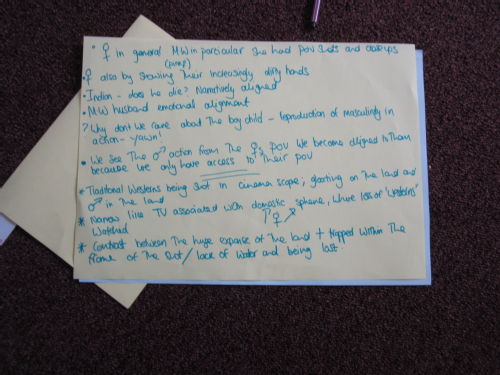 • ♀ in general MW in particular she had pov shots and closeups
(pimp)
• ♀ also by showing their increasingly dirty hands
• Indian - does he die? Narratively aligned
• MW husband emotional alignment
? Why dont we care about the boy child - reproduction of masculinity in
action - yawn!
• We see the ♂ action from the ♀s pov we become aligned to them
because we only have access to their pov
* Traditional Westerns being shot in cinema scope; gloating on the land and
♂ in the land
* Narrow like TV associated with domestic sphere, where lots of 'westerns'
watched ♀
* Contrast between the huge expanse of the land + trapped within the
frame of the shot / lack of water and being lost.